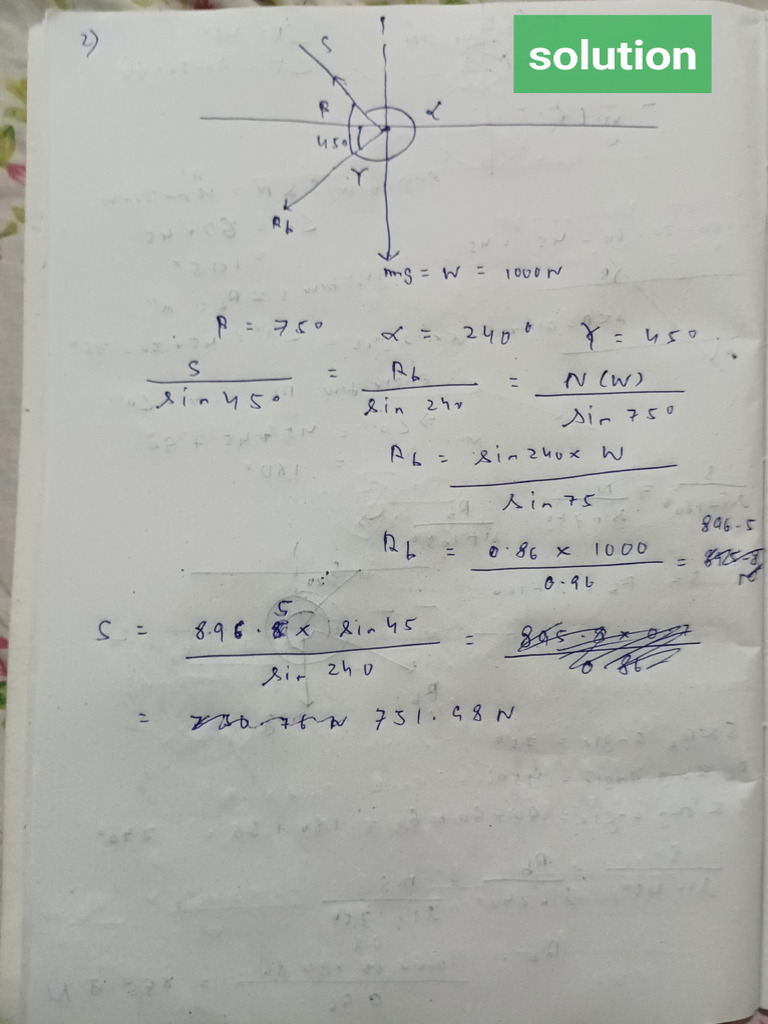 2)
solution
S
β
α
45°
γ
Rb
mg = W = 1000N
β = 75° α = 240° γ = 45°
S / sin 45° = Rb / sin 240 = N(W) / sin 75°
Rb = sin 240 × W / sin 75
Rb = 0.86 × 1000 / 0.96 = 896.5
S = 896.5 × sin 45 / sin 240 =
= 751.98 N